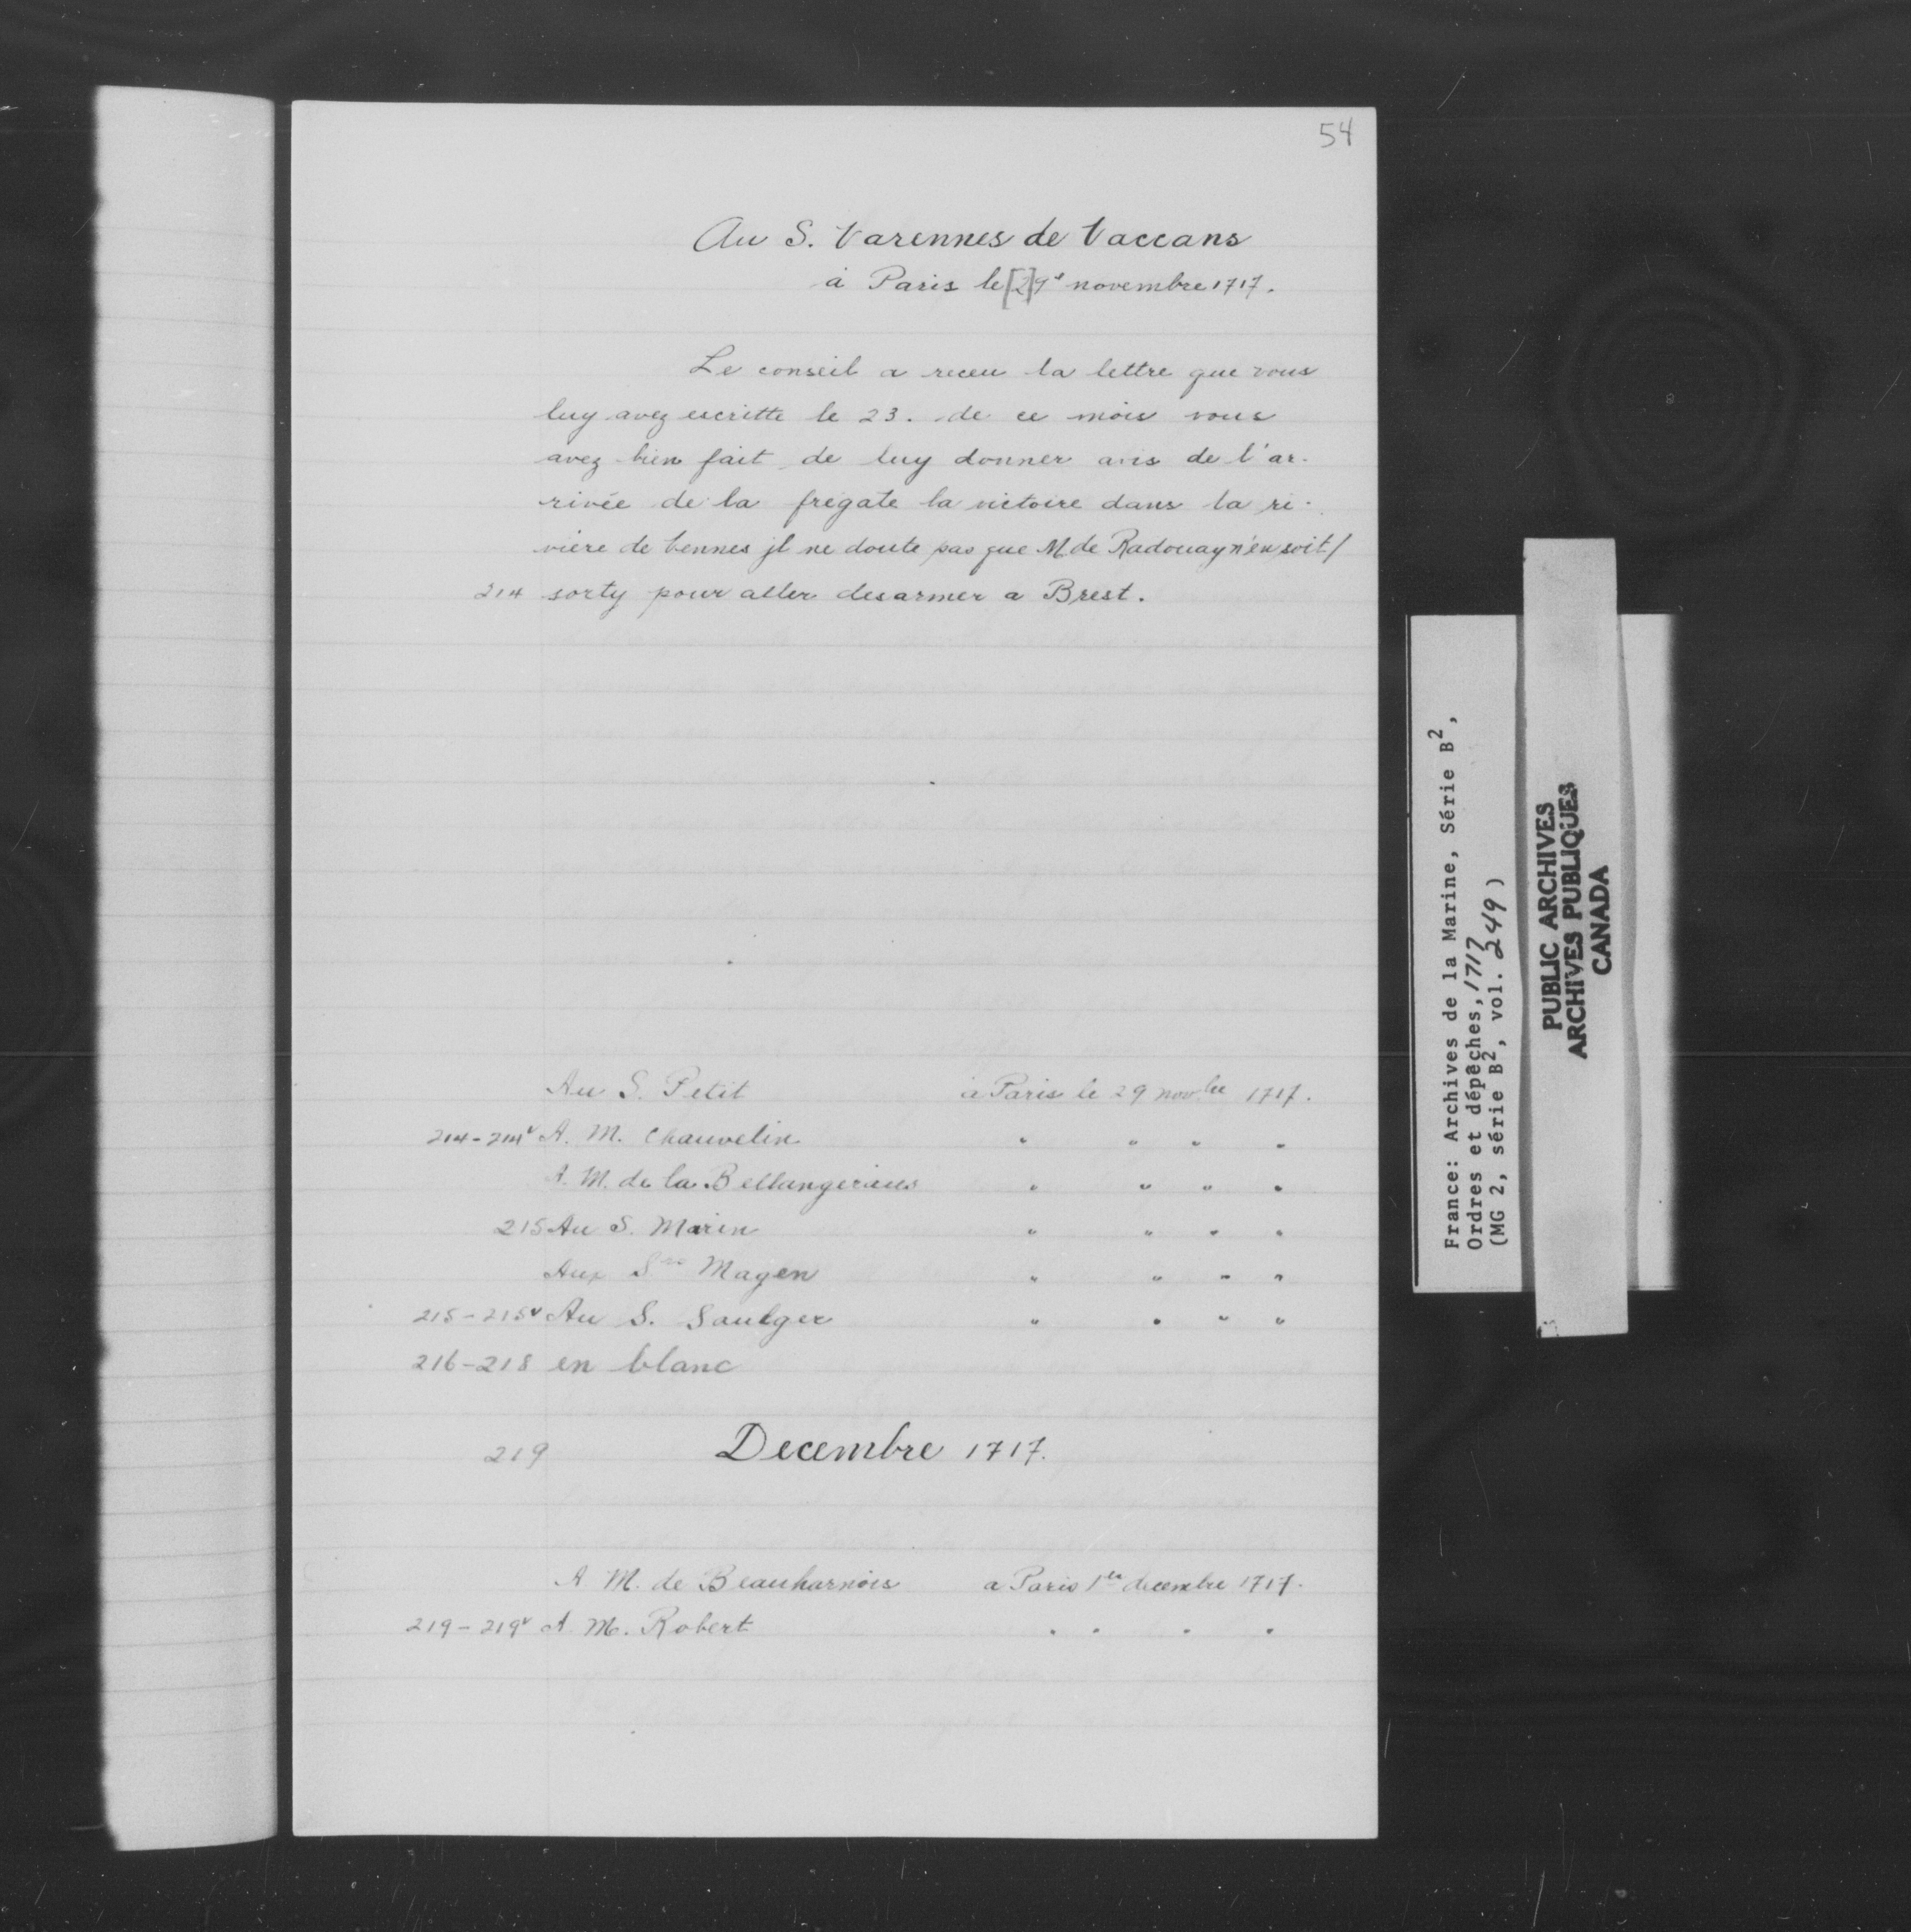 54
Au S. Varennes de Vaccans
à Paris le [2]9e novembre 1717.
Le conseil a receu la lettre que vous
luy avez escritte le 23. de ce mois vous
avez bien fait de luy donner avis de l'ar-
rivée de la fregate la victoire dans la ri-
viere de bennes jl ne doute pas que M. de Radouay n'en soit/
214 sorty pour aller desarmer a Brest.
Au S. Petit à Paris le 29 novbre 1717.
214-214v A. M. Chauvelin " " " "
A. M. de la Bellangerais " " " "
215 Au S. Marin " " " "
Aux Srs Magen " " " "
215-215v Au S. Saulger " " " "
216-218 en blanc
219 Decembre 1717.
A M. de Beauharnois a Paris 1er decembre 1717.
219-219v A. M. Robert " " " "
France: Archives de la Marine, Série B2,
Ordres et dépêches, 1717
(MG 2, série B2, vol. 249)
PUBLIC ARCHIVES
ARCHIVES PUBLIQUES
CANADA